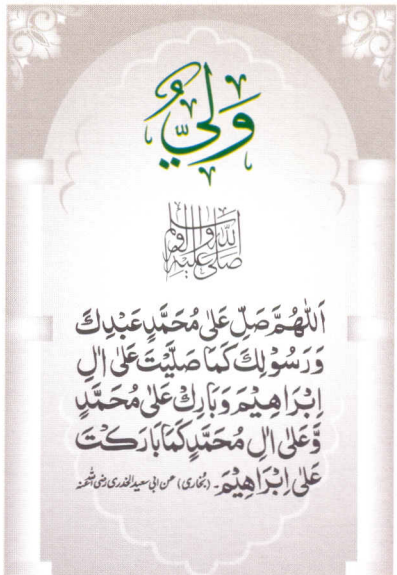 وَلِيٌّ
صلى الله عليه وآله وسلم
اَللّٰهُمَّ صَلِّ عَلٰى مُحَمَّدٍ عَبْدِكَ
وَرَسُوْلِكَ كَمَا صَلَّيْتَ عَلٰى اٰلِ
اِبْرَاهِيْمَ وَبَارِكْ عَلٰى مُحَمَّدٍ
وَّعَلٰى اٰلِ مُحَمَّدٍ كَمَا بَارَكْتَ
عَلٰى اِبْرَاهِيْمَ۔ (بخاری) عن ابی سعید الخدری رضی اللہ عنہ